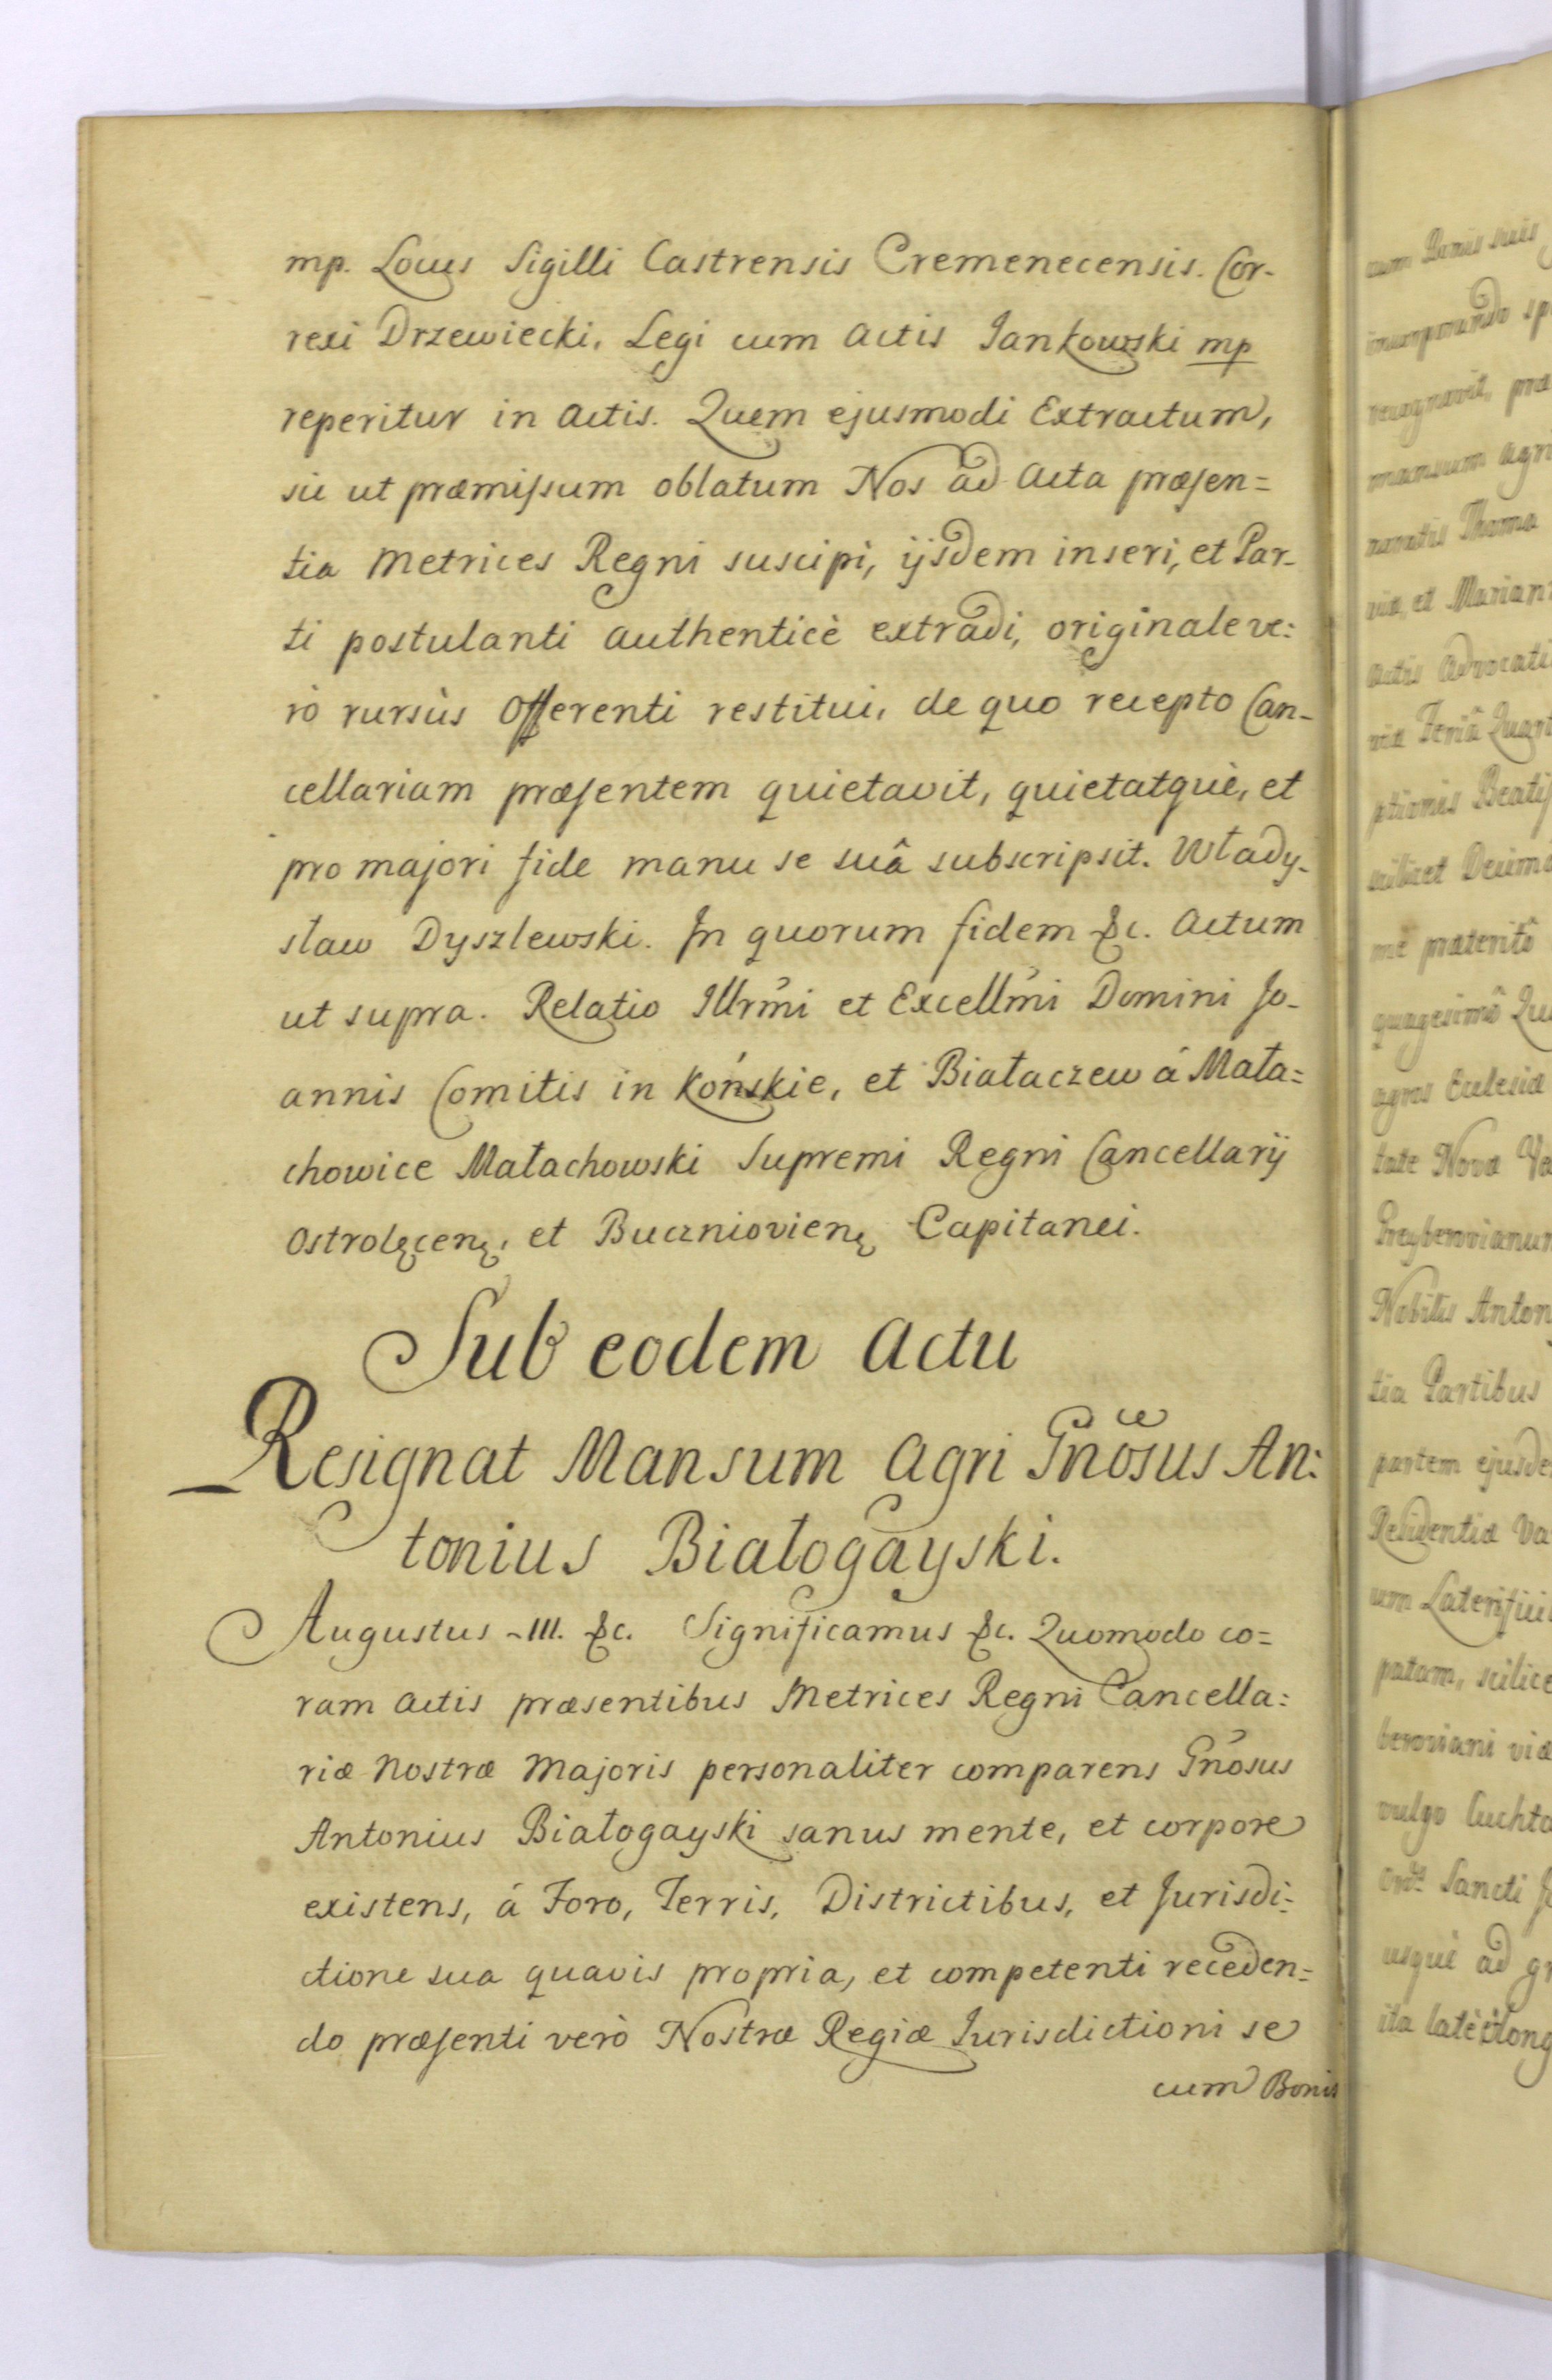 mp. Locus Sigilli Castrensis Cremenecensis. Cor-
rexi Drzewiecki, Legi cum Actis Jankowski mp
reperitur in Actis. Quem ejusmodi Extractum,
sic ut præmissum oblatum Nos ad Acta præsen=
tia Metrices Regni suscipi, ijsdem inseri, et Par-
ti postulanti authenticè extradi, originale ve:
rò rursùs Offerenti restitui, de quo recepto Can-
cellariam præsentem quietavit, quietatquè, et
pro majori fide manu se suâ subscripsit. Włady-
sław Dyszlewski. In quorum fidem &c. Actum
ut supra. Relatio Illrmi et Excellmi Domini Jo-
annis Comitis in Końskie, et Białaczew á Mała=
chowice Małachowski Supremi Regni Cancellarij
Ostrolęcenę, et Buczniovienę Capitanei.
Sub eodem Actu
Resignat Mansum Agri Gnosus An:
tonius Białogayski.
Augustus III. &c. Significamus &c. Quomodo co=
ram Actis præsentibus Metrices Regni Cancella:
riæ Nostræ Majoris personaliter comparens Gnosus
Antonius Białogayski sanus mente, et corpore
existens, á Foro, Terris, Districtibus, et Jurisdi:
ctione sua quavis propria, et competenti receden=
do præsenti verò Nostræ Regiæ Jurisdictioni se
cum Bonis
inscorporando
recognavit, præ
mansum Agri
Thoma
viæ, et Mariann
Actis Advocati
viæ Feriâ Quart
ptionis Beatis
scilicet Decimâ
me præteritô
quagesimô Qu
agros Ecclesiæ
tate Nova Va
Preyberovianum
Nobilis Anton
tia Partibus
partem ejusde
Residentiæ Va
um Laterifici
patam, scilice
beroviani viæ
vulgo Cuchto
Ord: Sancti J
usquè ad gr
ita latè et long